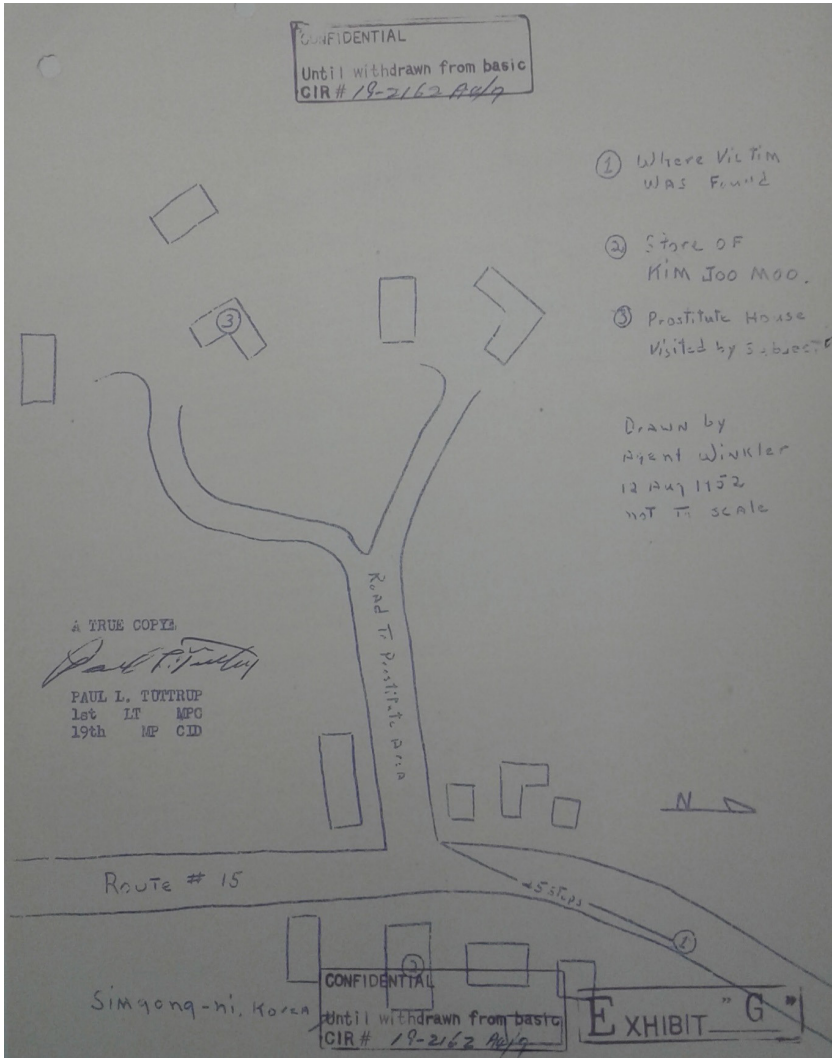 CONFIDENTIAL
Until withdrawn from basic
CIR # 19-2162
① Where Victim
was Found
② Store OF
Kim Joo Moo.
③ Prostitute House
Visited by Subject
3
Drawn by
Agent Winkler
12 Aug 1952
not To scale
Road To Prostitute Area
A TRUE COPY
PAUL L. TUTTRUP
1st LT MPC
19th MP CID
N
Route # 15
45 steps
1
2
Simgong-ni, Korea
CONFIDENTIAL
Until withdrawn from basic
CIR # 19-2162
EXHIBIT "G"